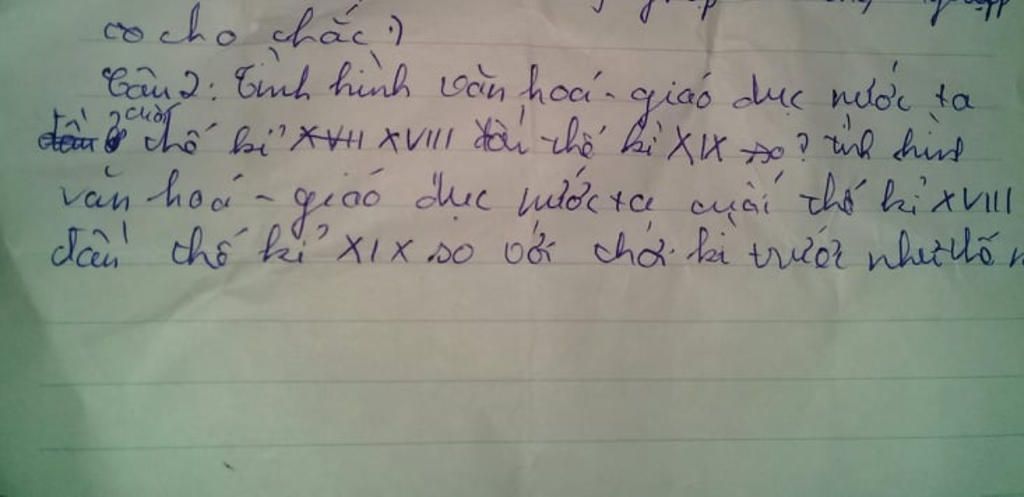 cơ cho chắc :)
Câu 2: Tình hình văn hoá - giáo dục nước ta
từ cuối thế kỉ XVIII đến thế kỉ XIX ? tình hình
văn hoá - giáo dục nước ta cuối thế kỉ XVIII
đến thế kỉ XIX so với thời kì trước như thế n